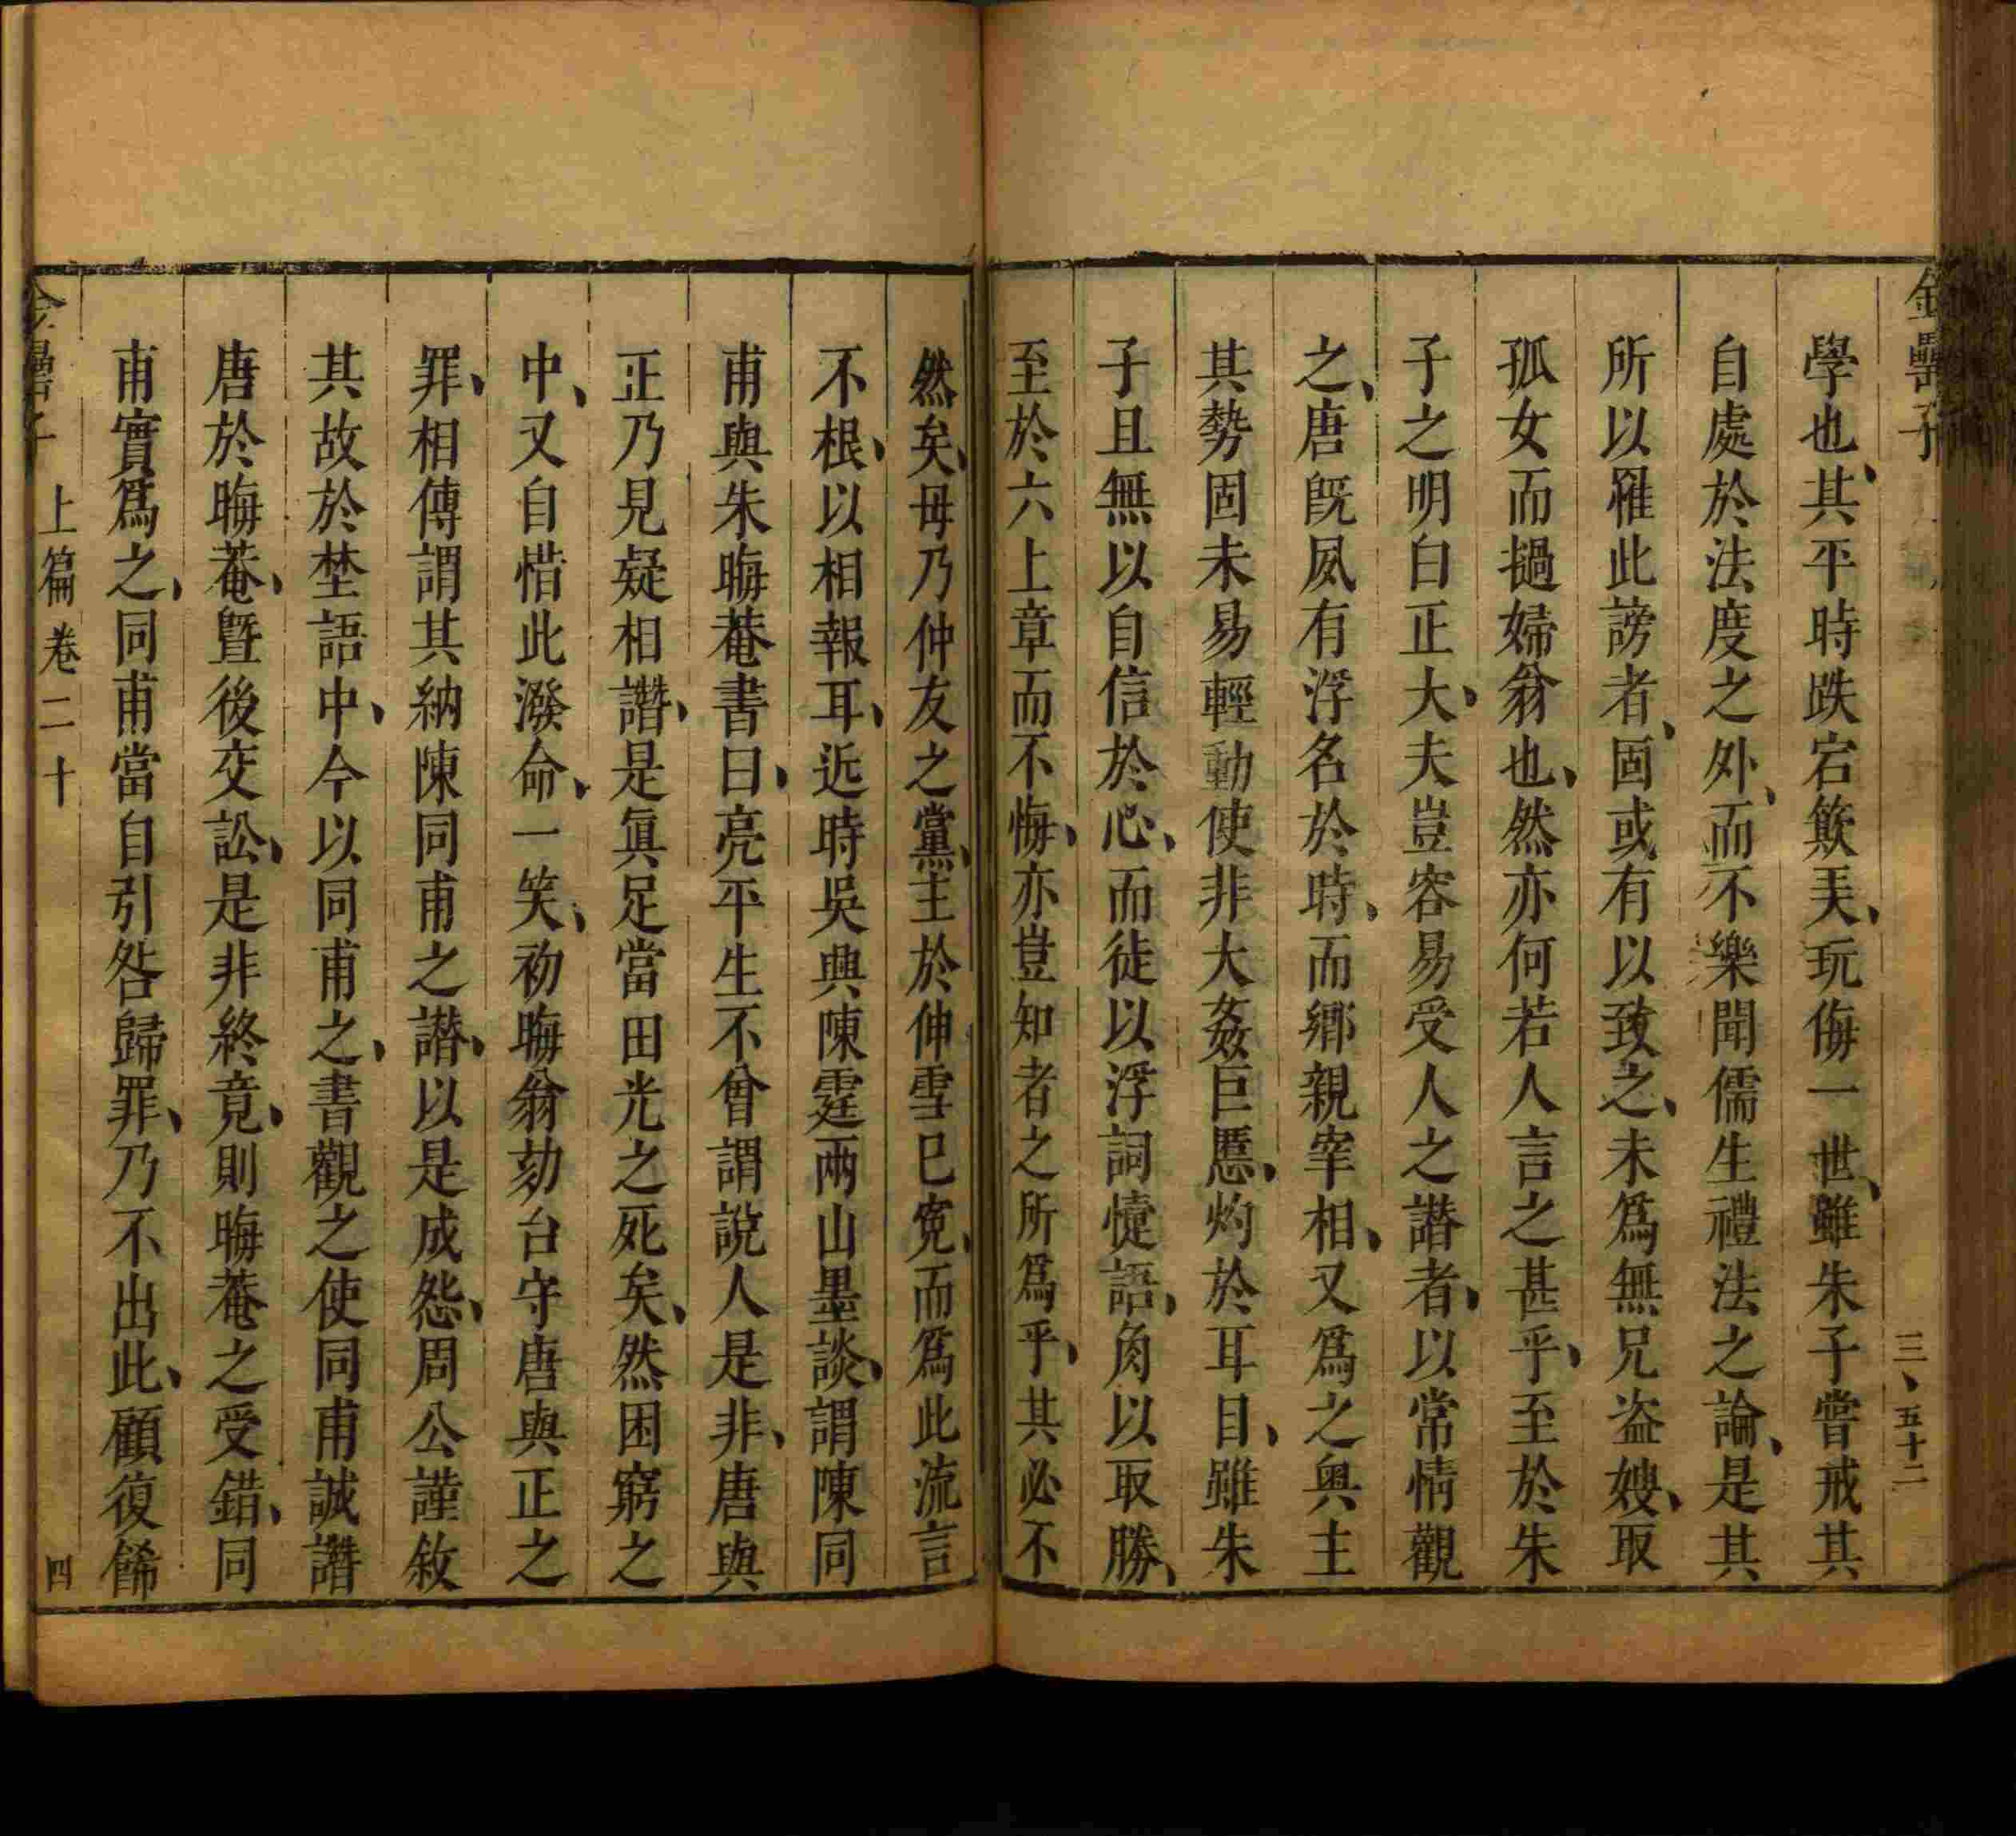 金罍子
三、五十二
學也、其平時跌宕䈻𠰸、玩侮一世、雖朱子嘗戒其
自處於法度之外、而不樂聞儒生禮法之論、是其
所以罹此謗者、固或有以致之、未爲無兄盜嫂、取
孤女而撾婦翁也、然亦何若人言之甚乎、至於朱
子之明白正大、夫豈容易受人之譖者、以常情觀
之、唐旣夙有浮名於時、而鄉親宰相、又爲之奥主
其勢固未易輕動使非大姦巨慝、灼於耳目、雖朱
子且無以自信於心、而徒以浮詞㥬語、角以取勝、
至於六上章而不悔、亦豈知者之所爲乎、其必不
然矣、毋乃仲友之黨、主於伸雪巳寃、而爲此流言
不根、以相報耳、近時吳興陳霆兩山墨談、謂陳同
甫與朱晦菴書曰、亮平生不曾謂說人是非、唐與
正乃見疑相譖、是眞足當田光之死矣、然困窮之
中、又自惜此潑命、一笑、初晦翁劾台守唐與正之
罪、相傳謂其納陳同甫之譖、以是成怨、周公謹敘
其故於埜語中、今以同甫之書觀之使同甫誠譖
唐於晦菴、曁後交訟、是非終竟、則晦菴之受錯、同
甫實爲之、同甫當自引咎歸罪、乃不出此、顧復餙
金罍子 上篇 卷二十
四